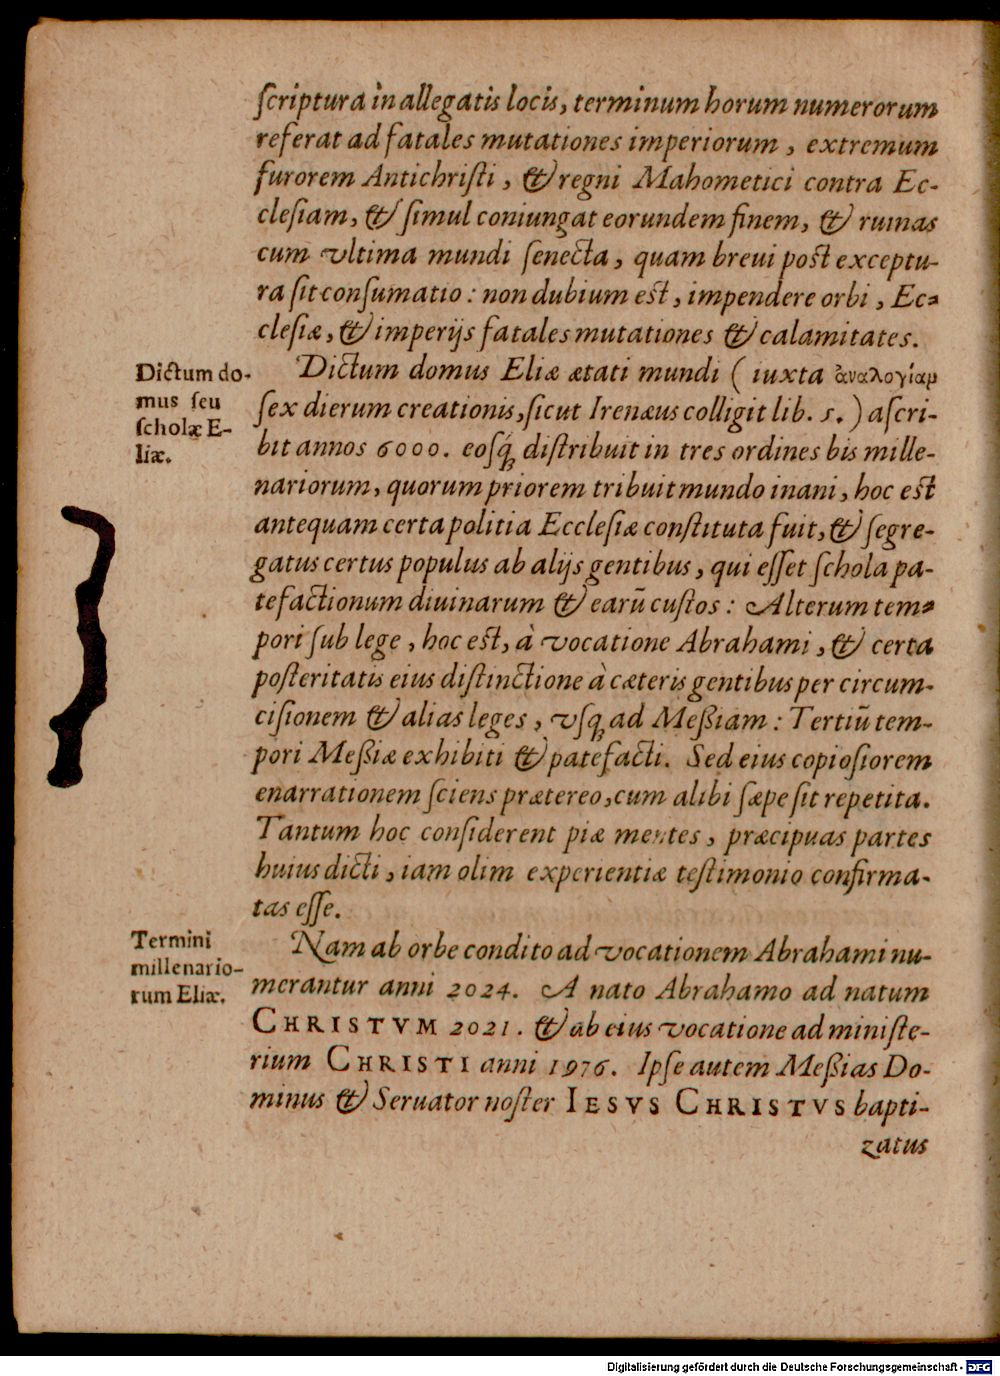 ſcriptura in allegatis locis, terminum horum numerorum
referat ad fatales mutationes imperiorum, extremum
furorem Antichriſti, & regni Mahometici contra Ec-
cleſiam, & ſimul coniungat eorundem finem, & ruinas
cum vltima mundi ſenecta, quam breui post exceptu-
ra ſit conſumatio: non dubium est, impendere orbi, Ec-
cleſiæ, & imperijs fatales mutationes & calamitates.
Dictum do-
mus ſeu
ſcholæ E-
liæ.
Dictum domus Eliæ ætati mundi (iuxta ἀναλογίαμ
ſex dierum creationis, ſicut Irenæus colligit lib. 5.) aſcri-
bit annos 6000. eoſq́; diſtribuit in tres ordines bis mille-
nariorum, quorum priorem tribuit mundo inani, hoc est
antequam certa politia Eccleſiæ conſtituta fuit, & ſegre-
gatus certus populus ab alijs gentibus, qui eſſet ſchola pa-
tefactionum diuinarum & earū cuſtos: Alterum tem-
pori ſub lege, hoc est, à vocatione Abrahami, & certa
poſteritatis eius diſtinctione à cæteris gentibus per circum-
ciſionem & alias leges, vſq; ad Meßiam: Tertiū tem-
pori Meßiæ exhibiti & patefacti. Sed eius copioſiorem
enarrationem ſciens prætereo, cum alibi ſæpe ſit repetita.
Tantum hoc conſiderent piæ mentes, præcipuas partes
huius dicti, iam olim experientiæ teſtimonio confirma-
tas eſſe.
Termini
millenario-
rum Eliæ.
Nam ab orbe condito ad vocationem Abrahami nu-
merantur anni 2024. A nato Abrahamo ad natum
CHRISTVM 2021. & ab eius vocatione ad miniſte-
rium CHRISTI anni 1976. Ipſe autem Meßias Do-
minus & Seruator noſter IESVS CHRISTVS bapti-
zatus
Digitalisierung gefördert durch die Deutsche Forschungsgemeinschaft - DFG